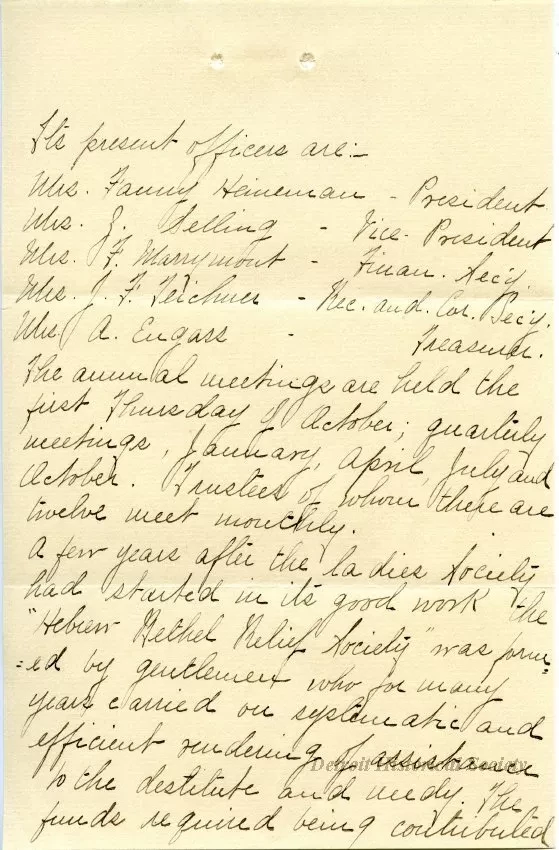 Its present officers are:-
Mrs. Fanny Heineman - President
Mrs. Z. Selling - Vice-President
Mrs. F. Marymont - Finan. Secy.
Mrs. J. F. Teichner - Rec. and. Cor. Secy.
Mrs A. Engass - Treasurer.
The annual meetings are held the
first Thursday of October; quarterly
meetings, January, April, July and
October. Trustees of whom there are
twelve meet monthly.
A few years after the ladies Society
had started in its good work the
"Hebrew Bethel Relief Society" was form=
=ed by gentlemen who for many
years carried on systematic and
efficient rendering of assistance
to the destitute and needy. The
funds required being contributed
Detroit Historical Society